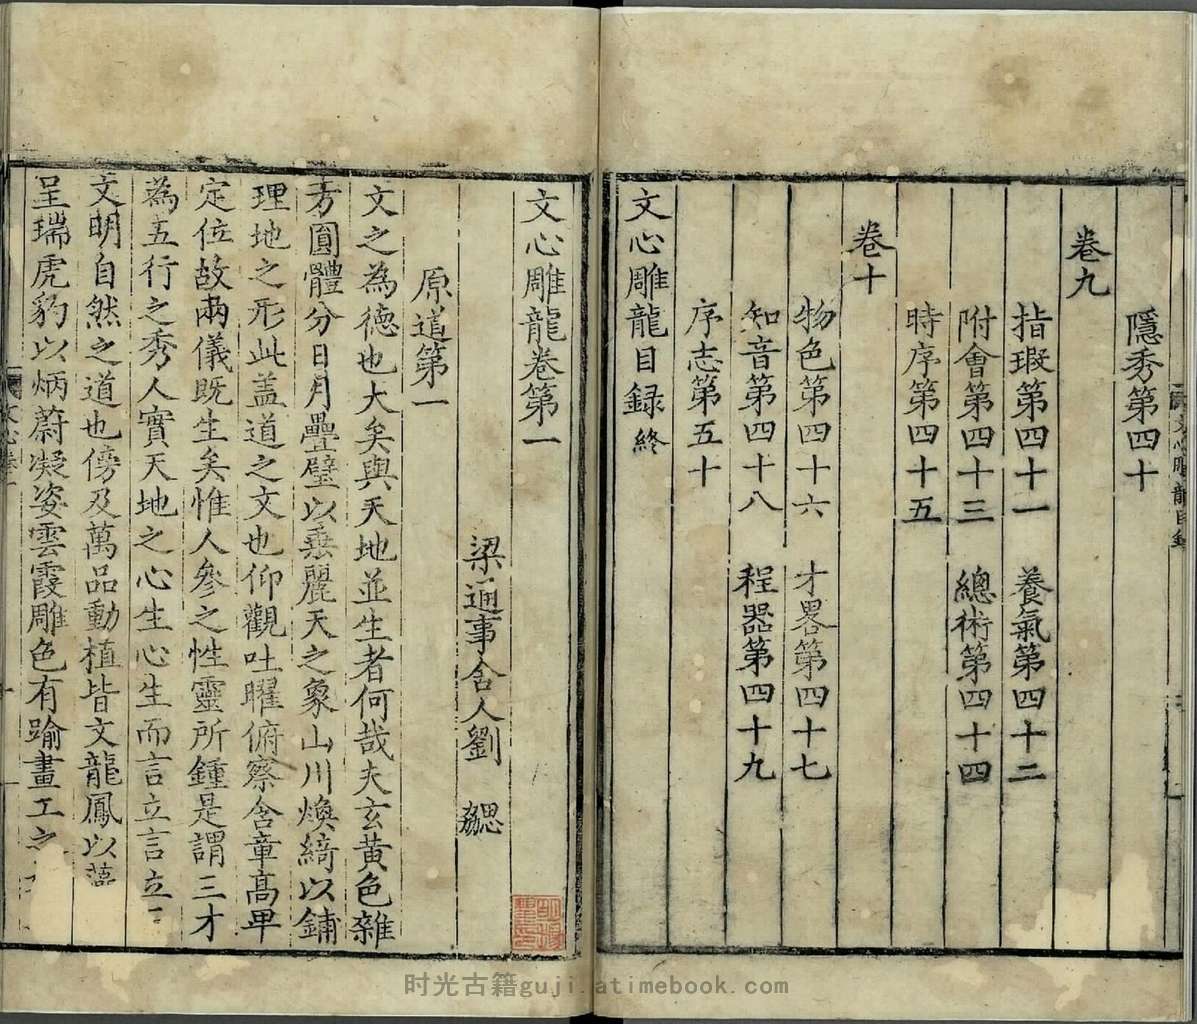 隱秀第四十
卷九
指瑕第四十一 養氣第四十二
附會第四十三 總術第四十四
時序第四十五
卷十
物色第四十六 才畧第四十七
知音第四十八 程器第四十九
序志第五十
文心雕龍目録終
文心雕龍卷第一
梁通事舍人劉 勰
原道第一
文之為德也大矣與天地並生者何哉夫玄黄色雜
方圓體分日月疊璧以垂麗天之象山川煥綺以鋪
理地之形此盖道之文也仰觀吐曜俯察含章髙卑
定位故兩儀既生矣惟人參之性靈所鍾是謂三才
為五行之秀人實天地之心生心生而言立言立
文明自然之道也傍及萬品動植皆文龍鳳以藻
呈瑞虎豹以炳蔚凝姿雲霞雕色有踰畫工之
时光古籍guji.atimebook.com